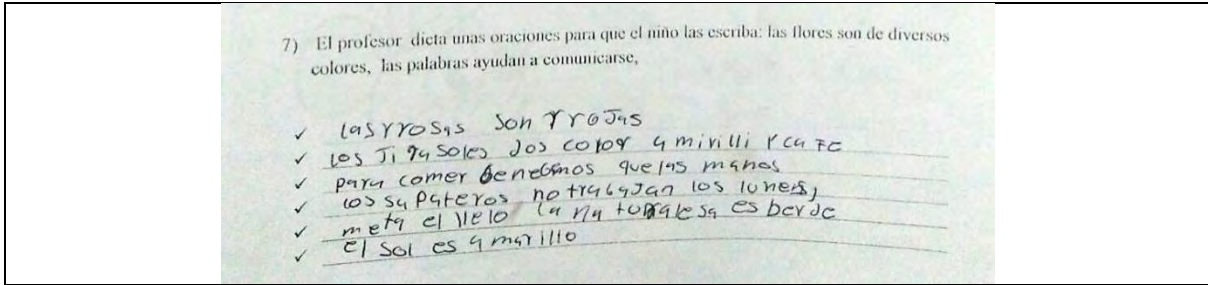 7) El profesor dicta unas oraciones para que el niño las escriba: las flores son de diversos
colores, las palabras ayudan a comunicarse,
✓ lasrrosas son rrojas
✓ los jigasoles dos color amirilli y cafe
✓ para comer benebemos que las manos
✓ los sapateros no trabajan los lunes,
✓ meta el llelo la naturalesa es berde
✓ el sol es amarillo